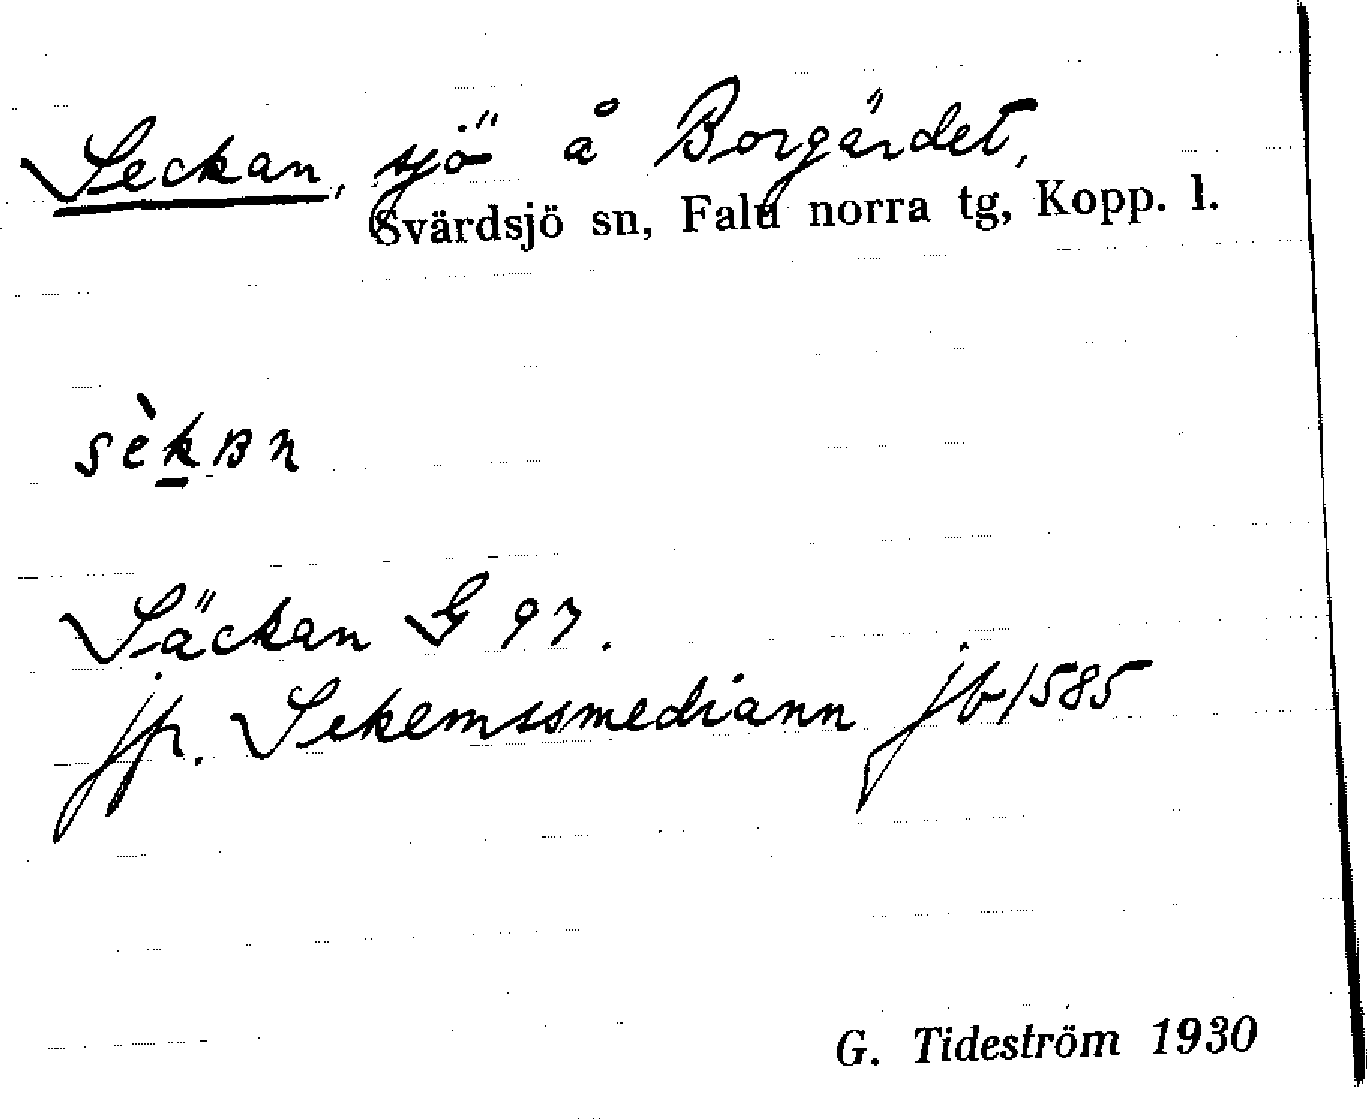 Seckan, sjö å Borgärdet,
Svärdsjö sn, Falu norra tg, Kopp. l.
sèkʙn
Säckan G 97.
jfr. Sekemssmediann jb 1585
G. Tideström 1930